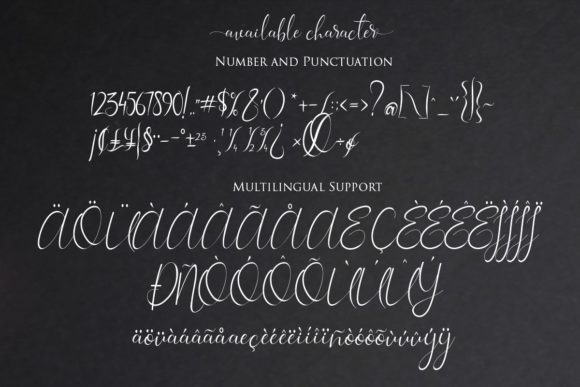 available character
Number and Punctuation
1234567890!.,"#$%&'()*+-/:;<=>?@[\]^_`'{|}~
¡¢£¥|§¨--°±²³·¹¼½¾¿×Ø÷¢
Multilingual Support
ÄÖÜÀÁÂÃÅÆÇÈÉÊËÌÍÎÏ
ÐÑÒÓÔÕÙÚÛÝ
äöüàáâãåæçèéêëìíîïñòóôõùúûýÿ